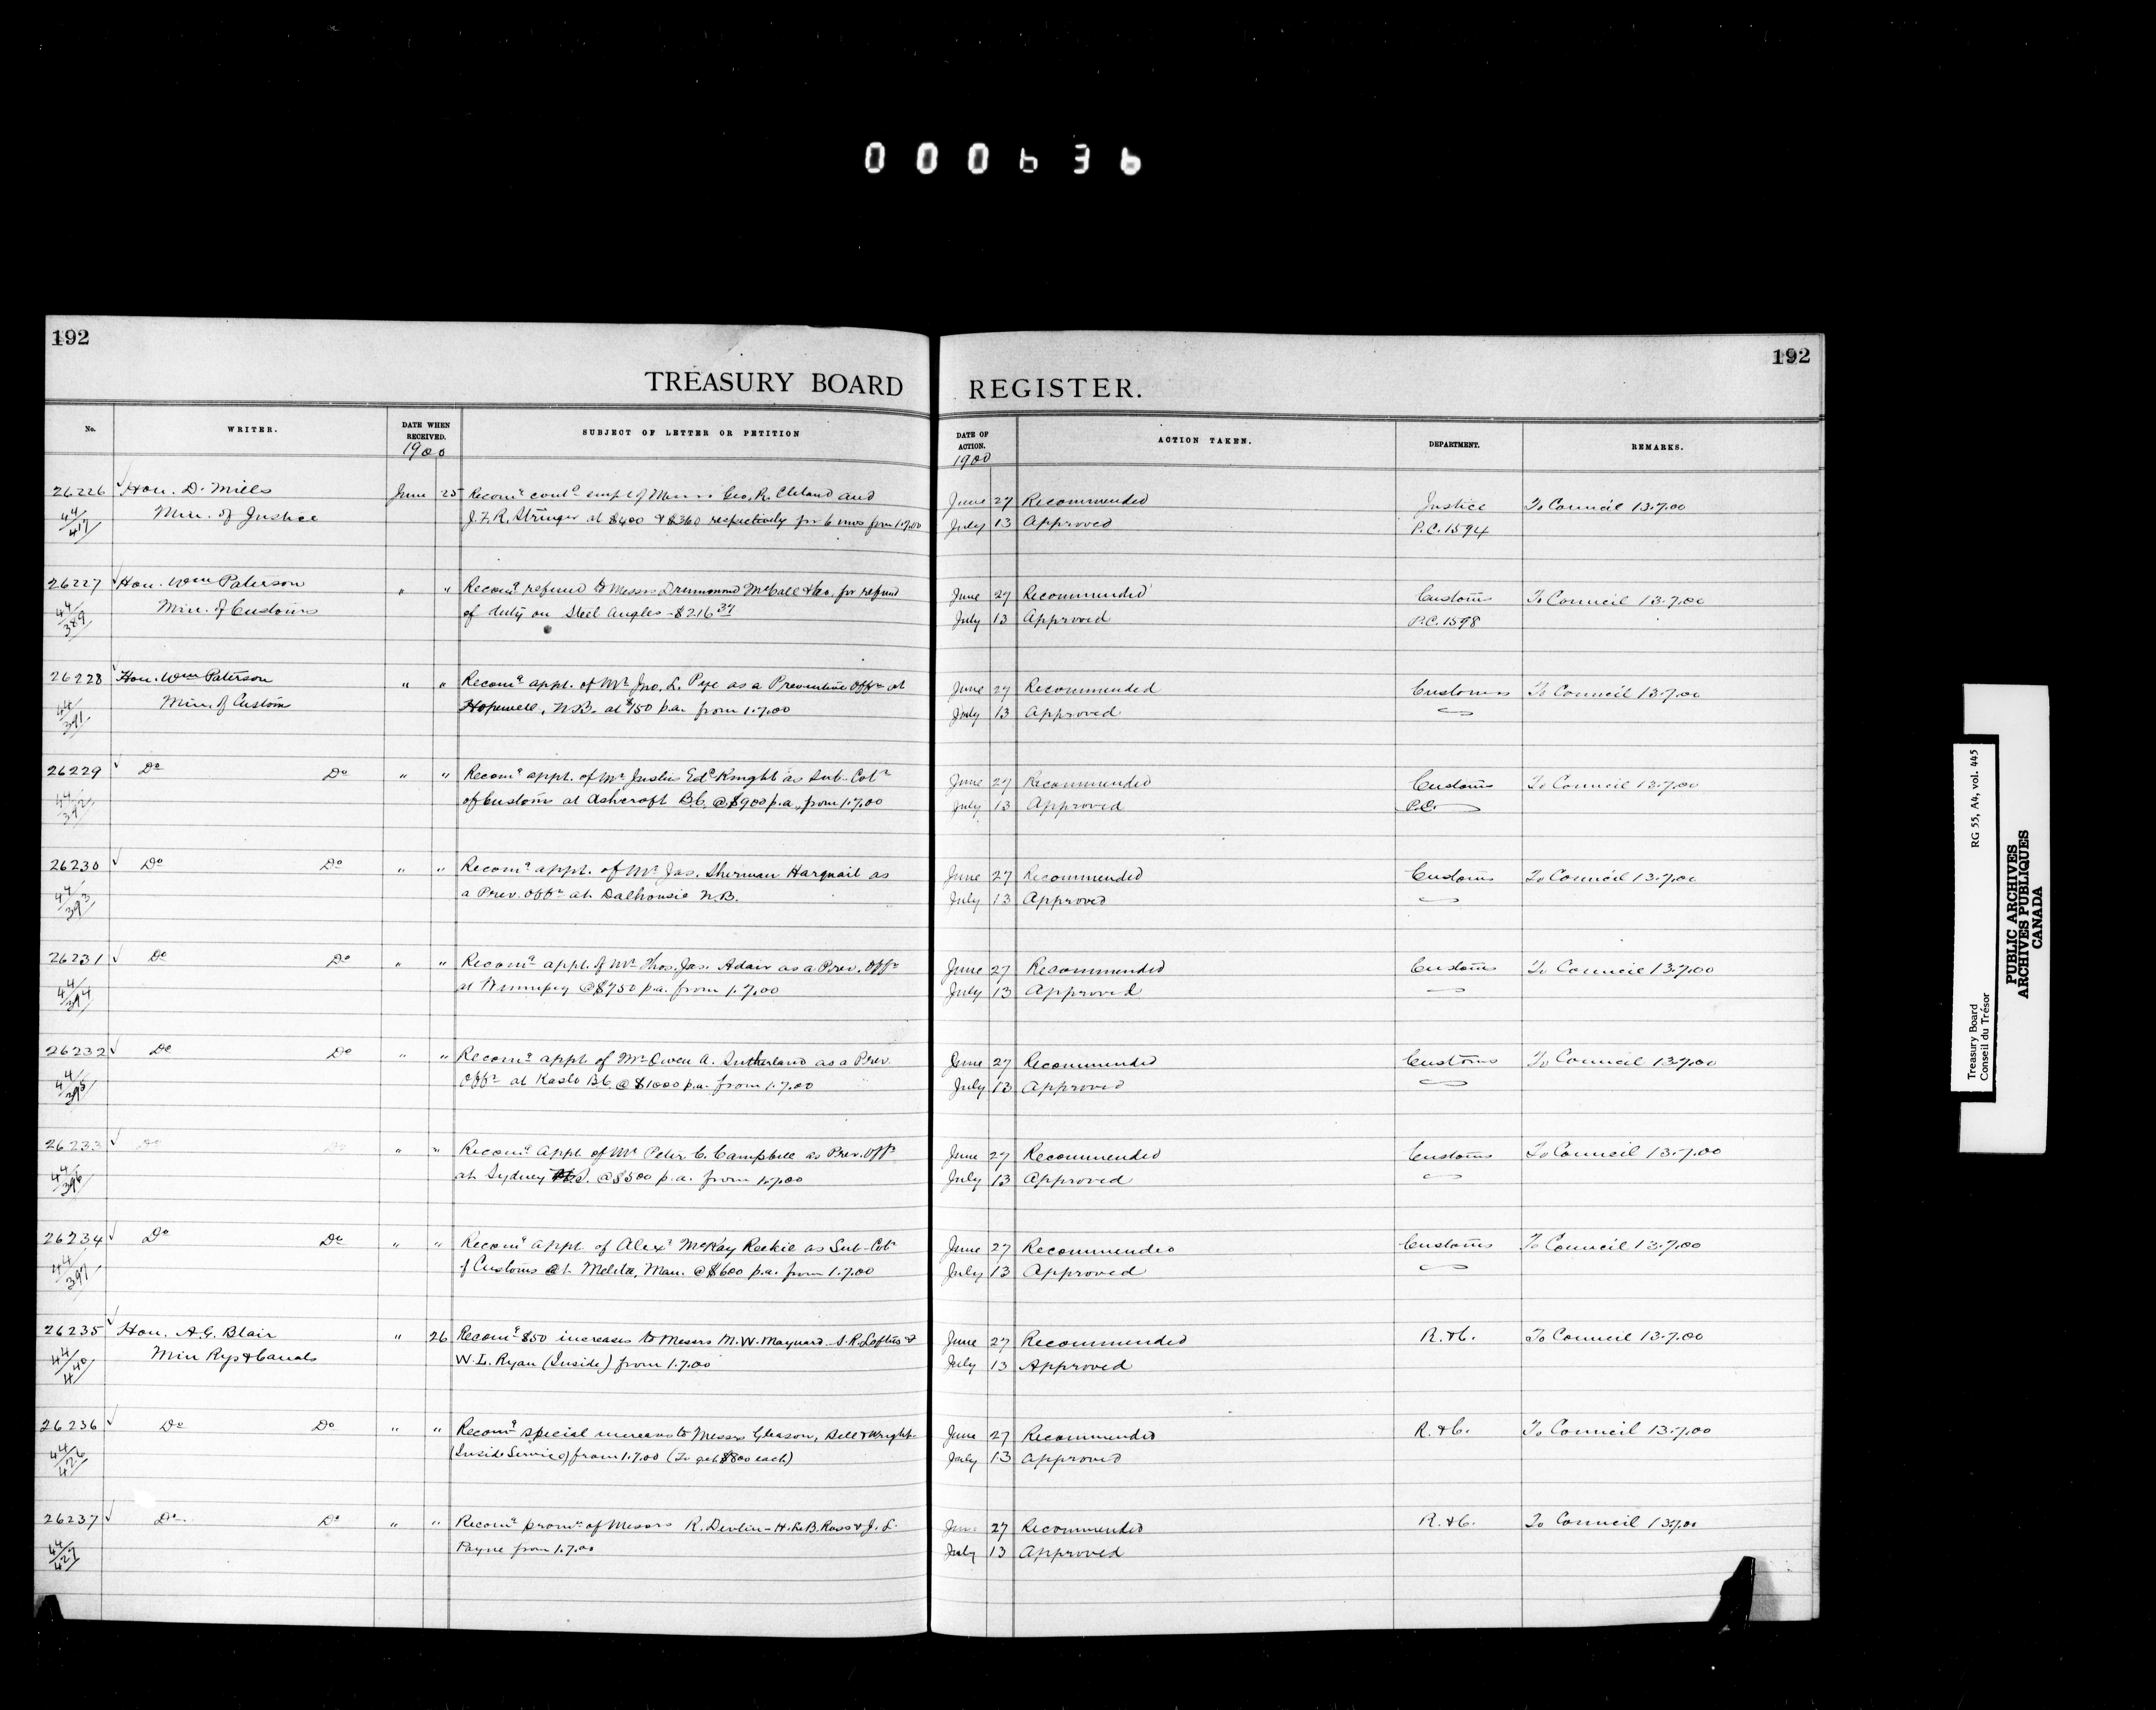 000636
192
TREASURY BOARD
REGISTER.
192
No.
WRITER.
DATE WHEN RECEIVED.
1900
SUBJECT OF LETTER OR PETITION
DATE OF ACTION.
1900
ACTION TAKEN.
DEPARTMENT.
REMARKS.
26226 Hon. D. Mills June 25 Recomg contd empt of Messrs Geo. R. Cleland and June 27 Recommended Justice To Council 13.7.00
44/417 Min. of Justice J.F.R. Stringer at $400 & $360 respectively for 6 mos from 1.7.00 July 13 Approved P.C. 1594
26227 Hon. Wm Paterson " " Recomg refund to Messrs Drummond McCall & Co. for refund June 27 Recommended Customs To Council 13.7.00
44/389 Min. of Customs of duty on Steel Angles - $216.37 July 13 Approved P.C. 1598
26228 Hon. Wm Paterson " " Recomg appt. of Mr Jno. L. Pye as a Preventive Offr at June 27 Recommended Customs To Council 13.7.00
44/391 Min. of Custom Hopewell, N.B. at $150 p.a. from 1.7.00 July 13 Approved
26229 Do Do " " Recomg appt. of Mr Justin Edd Knight as Sub-Colr June 27 Recommended Customs To Council 13.7.00
of Customs at Ashcroft B.C. @ $900 p.a. from 1.7.00 July 13 Approved P.C.
26230 Do Do " " Recomg appt. of Mr Jas. Sherman Harquail as June 27 Recommended Customs To Council 13.7.00
44/393 a Prev. Offr at Dalhousie N.B. July 13 Approved
26231 Do Do " " Recomg appt. of Mr Thos. Jas. Adair as a Prev. Offr June 27 Recommended Customs To Council 13.7.00
44/394 at Winnipeg @ $750 p.a. from 1.7.00 July 13 Approved
26232 Do Do " " Recomg appt. of Mr Owen A. Sutherland as a Prev. June 27 Recommended Customs To Council 13.7.00
44/395 Offr at Kaslo B.C. @ $1000 p.a. from 1.7.00 July 13 Approved
26233 Do Do " " Recomg appt of Mr Peter C. Campbell as Prev. Offr June 27 Recommended Customs To Council 13.7.00
44/396 at Sydney @ $500 p.a. from 1.7.00 July 13 Approved
26234 Do Do " " Recomg appt. of Alexr McKay Reekie as Sub-Colr June 27 Recommended Customs To Council 13.7.00
44/397 of Customs at Melita, Man. @ $600 p.a. from 1.7.00 July 13 Approved
26235 Hon. A.G. Blair " 26 Recomg $50 increases to Messrs M.W. Maynard S.R. Loftus & June 27 Recommended R. & C. To Council 13.7.00
Min Rys & Canals W.L. Ryan (Inside) from 1.7.00 July 13 Approved
26236 Do Do " " Recomg special increase to Messrs Gleason, Bell & Wright June 27 Recommended R. & C. To Council 13.7.00
(Inside Service) from 1.7.00 (To get $800 each) July 13 Approved
26237 Do Do " " Recomg promn of Messrs R. Devlin - H. L. B. Ross & J. L. June 27 Recommended R. & C. To Council 13.7.00
44/427 Payne from 1.7.00 July 13 Approved
Treasury Board
Conseil du Trésor
RG 55, A4, vol. 445
PUBLIC ARCHIVES
ARCHIVES PUBLIQUES
CANADA